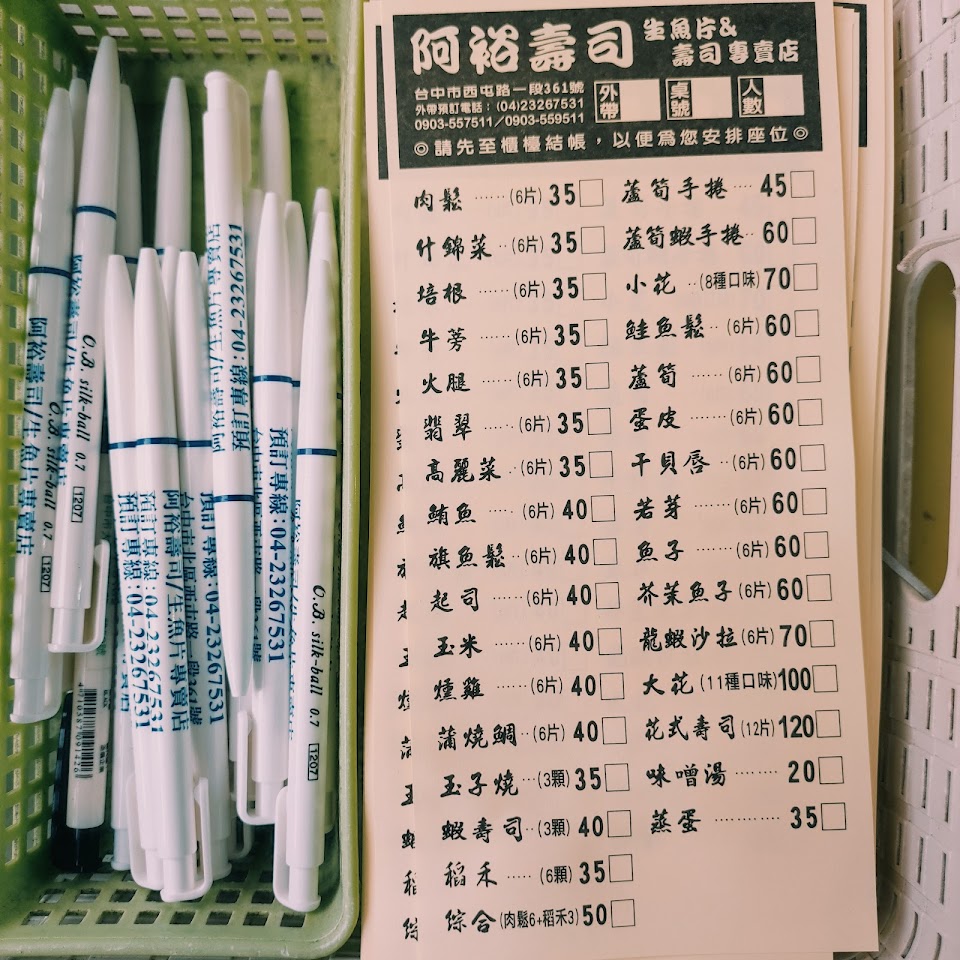 阿裕壽司 生魚片&
壽司專賣店
台中市西屯路一段361號
外帶預訂電話：(04)23267531
0903-557511／0903-559511
外帶 桌號 人數
◎請先至櫃檯結帳，以便為您安排座位◎
肉鬆 ······ (6片) 35
什錦菜 ·· (6片) 35
培根 ······ (6片) 35
牛蒡 ······ (6片) 35
火腿 ······ (6片) 35
翡翠 ······ (6片) 35
高麗菜 ·· (6片) 35
鮪魚 ····· (6片) 40
旗魚鬆 ·· (6片) 40
起司 ······ (6片) 40
玉米 ······ (6片) 40
燻雞 ······ (6片) 40
蒲燒鯛 ·· (6片) 40
玉子燒 ··· (3顆) 35
蝦壽司 ·· (3顆) 40
稻禾 ····· (6顆) 35
綜合 (肉鬆6+稻禾3) 50
蘆筍手捲 ···· 45
蘆筍蝦手捲 ·· 60
小花 ·· (8種口味) 70
鮭魚鬆 ·· (6片) 60
蘆筍 ······ (6片) 60
蛋皮 ······· (6片) 60
干貝唇 ·· (6片) 60
若芽 ······· (6片) 60
魚子 ······· (6片) 60
芥茉魚子 (6片) 60
龍蝦沙拉 (6片) 70
大花 (11種口味) 100
花式壽司 (12片) 120
味噌湯 ········ 20
蒸蛋 ············ 35
阿裕壽司/生魚片專賣店
O.B. silk-ball 0.7 1207
阿裕壽司/生魚片專賣店
O.B. silk-ball 0.7 1207
預訂專線:04-23267531
阿裕壽司/生魚片專賣店
預訂專線:04-23267531
預訂專線:04-23267531
預訂專線:04-23267531
O.B. silk-ball 0.7 1207